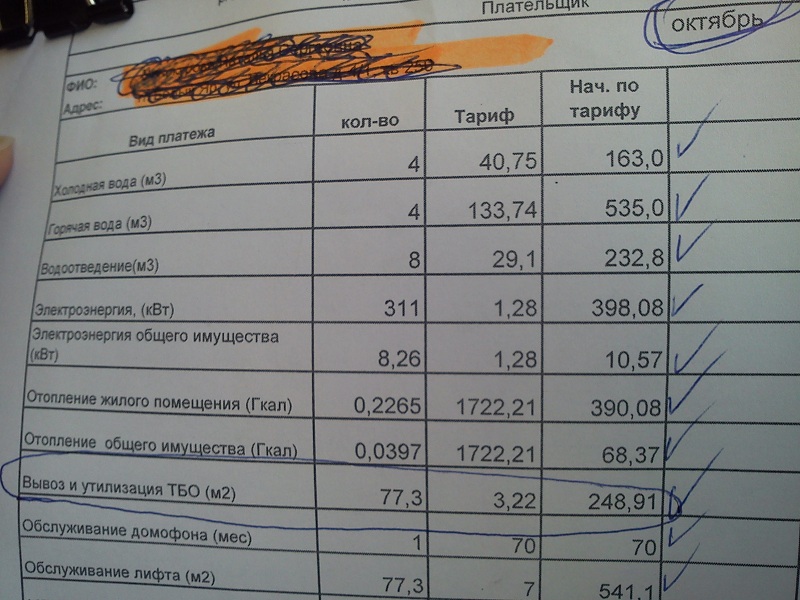 Плательщик
октябрь
ФИО:
Адрес:
Вид платежа кол-во Тариф Нач. по тарифу
Холодная вода (м3) 4 40,75 163,0
Горячая вода (м3) 4 133,74 535,0
Водоотведение(м3) 8 29,1 232,8
Электроэнергия, (кВт) 311 1,28 398,08
Электроэнергия общего имущества
(кВт) 8,26 1,28 10,57
Отопление жилого помещения (Гкал) 0,2265 1722,21 390,08
Отопление общего имущества (Гкал) 0,0397 1722,21 68,37
Вывоз и утилизация ТБО (м2) 77,3 3,22 248,91
Обслуживание домофона (мес) 1 70 70
Обслуживание лифта (м2) 77,3 7 541,1